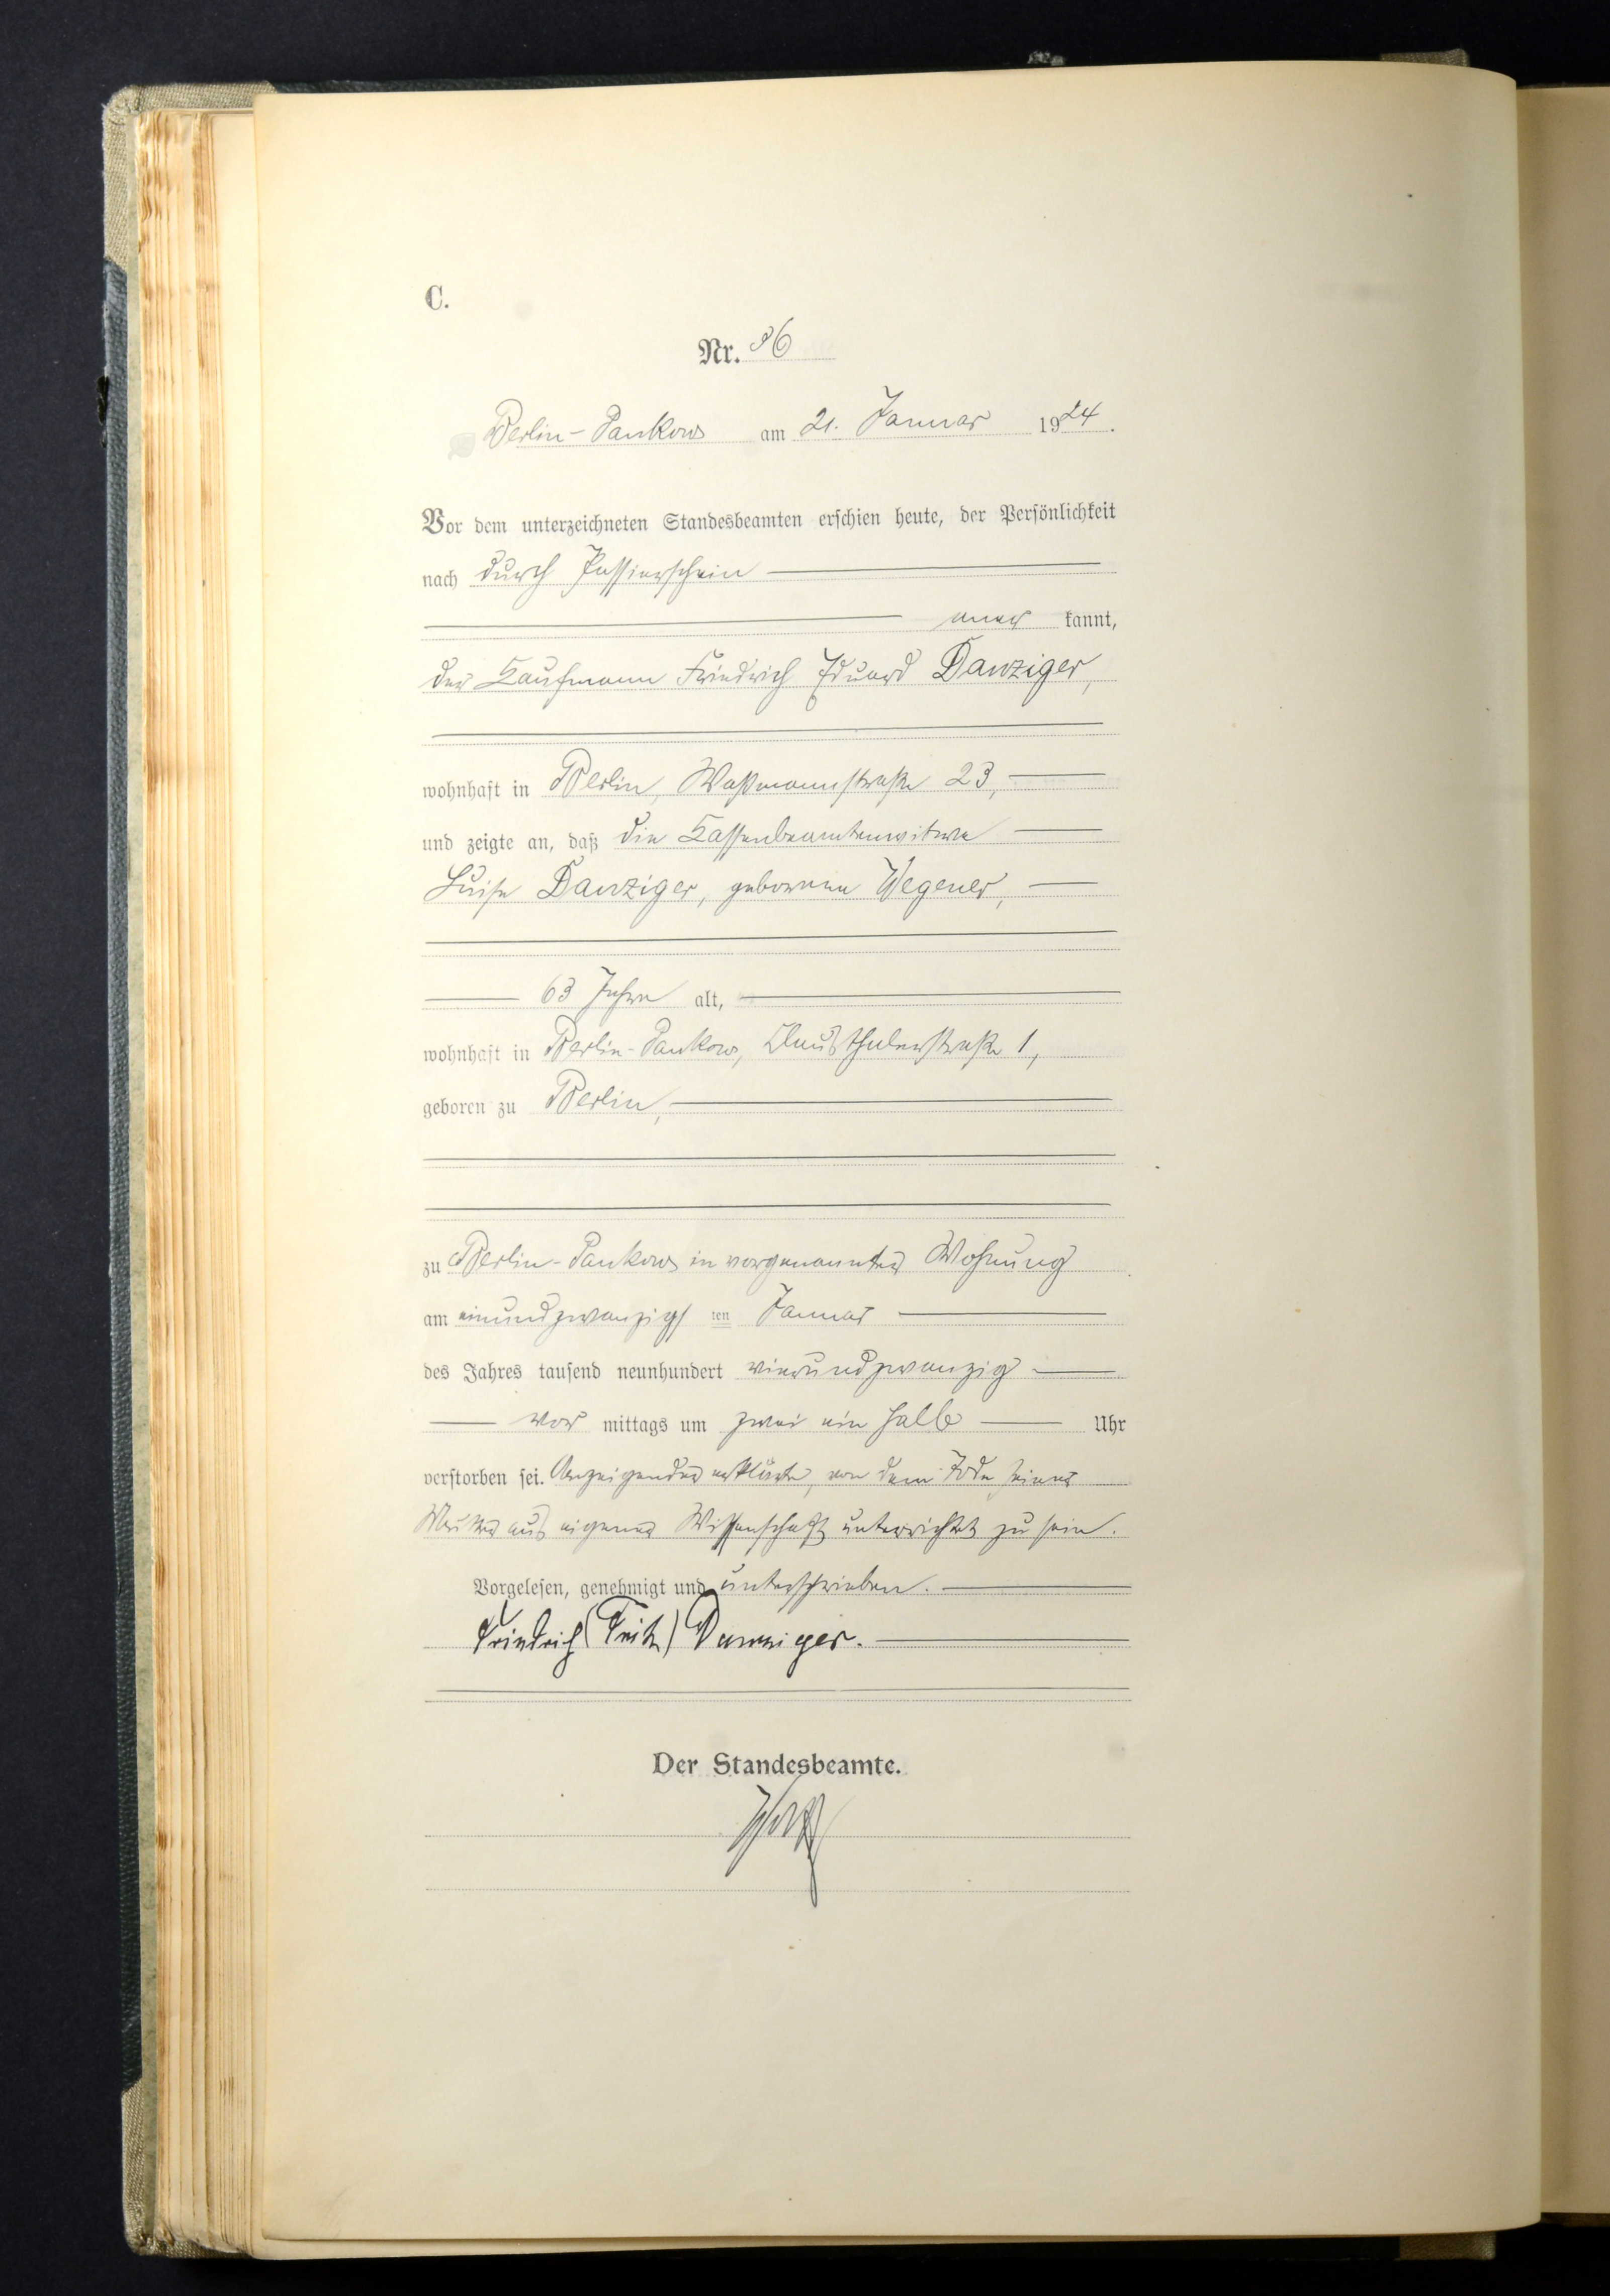 C.
Nr. 86
Berlin-Pankow am 21. Januar 1924.
Vor dem unterzeichneten Standesbeamten erschien heute, der Persönlichkeit
nach durch Passierschein
aner kannt,
der Kaufmann Friedrich Eduard Danziger,
wohnhaft in Berlin, Waßmannstraße 23,
und zeigte an, daß die Kassenbeamtenwitwe
Luise Danziger, geborene Wegener,
63 Jahre alt,
wohnhaft in Berlin-Pankow, Clausthalerstraße 1,
geboren zu Berlin,
zu Berlin-Pankow in vorgenannter Wohnung
am einundzwanzigs ten Januar
des Jahres tausend neunhundert vierundzwanzig
vor mittags um zwei ein halb Uhr
verstorben sei. Anzeigender erklärte, von dem Tode seiner
Mutter aus eigener Wissenschaft unterrichtet zu sein.
Vorgelesen, genehmigt und unterschrieben.
Friedrich (Fritz) Danziger.
Der Standesbeamte.